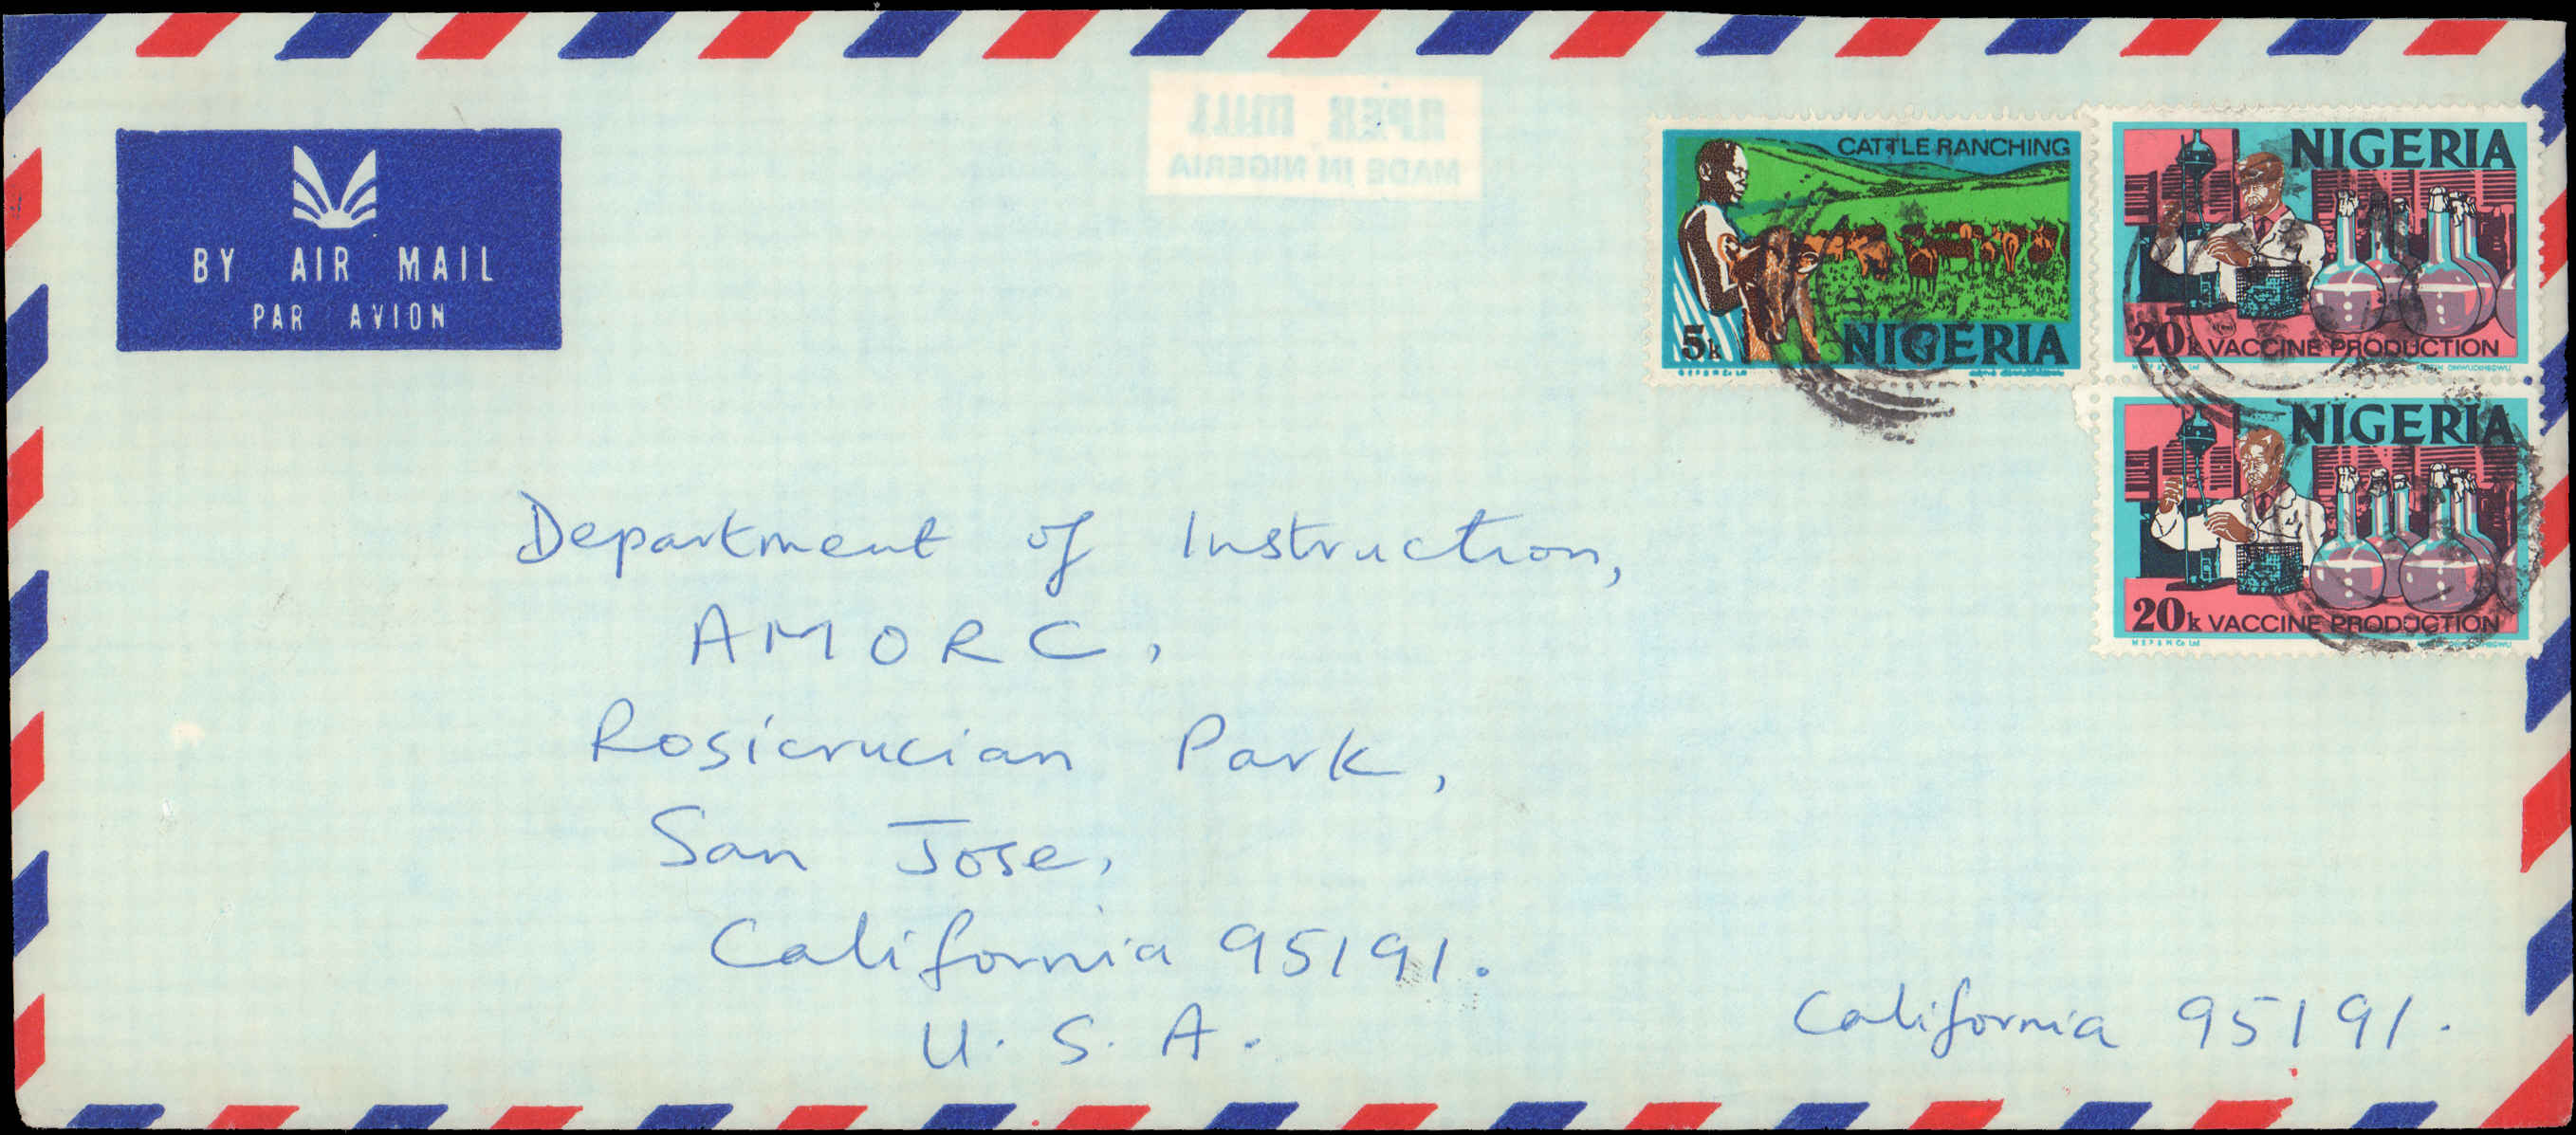 BY AIR MAIL
PAR AVION
APEX MILL
MADE IN NIGERIA
CATTLE RANCHING
5k NIGERIA
NIGERIA
20k VACCINE PRODUCTION
NIGERIA
20k VACCINE PRODUCTION
N S P & M Co Ltd
Department of Instruction,
AMORC,
Rosicrucian Park,
San Jose,
California 95191.
U. S. A.
California 95191.